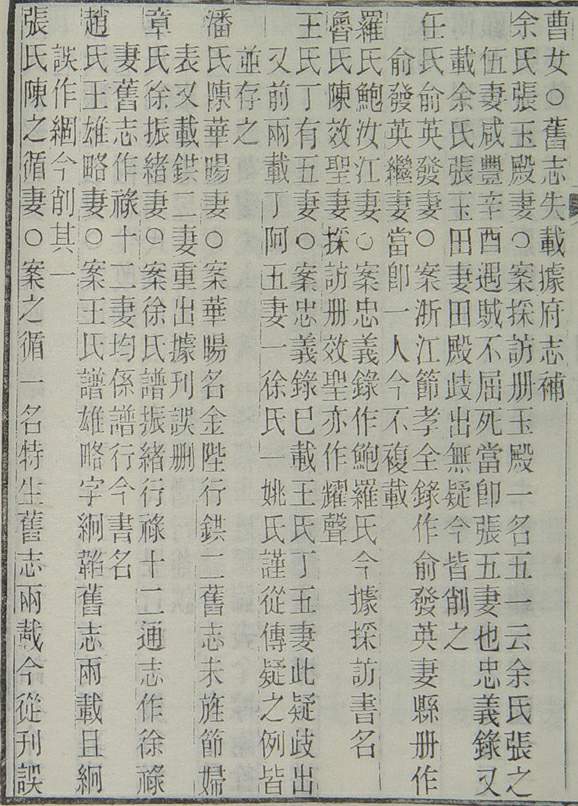 曹女○舊志失載據府志補
余氏張玉殿妻○案採訪册玉殿一名五一云余氏張之
伍妻咸豐辛酉遇賊不屈死當卽張五妻也忠義錄又
載余氏張玉田妻田殿歧出無疑今皆削之
任氏俞英發妻○案浙江節孝全錄作俞發英妻縣册作
俞發英繼妻當卽一人今不複載
羅氏鮑汝江妻○案忠義錄作鮑羅氏今據採訪書名
魯氏陳效聖妻採訪册效聖亦作耀聲
王氏丁有五妻○案忠義錄巳載王氏丁五妻此疑歧出
又前兩載丁阿五妻一徐氏一姚氏謹從傳疑之例皆
並存之
潘氏陳華暘妻○案華暘名金陛行鉷二舊志未旌節婦
表又載鉷二妻重出據刊誤删
章氏徐振緒妻○案徐氏譜振緒行祿十二通志作徐祿
妻舊志作祿十二妻均係譜行今書名
趙氏王雄略妻○案王氏譜雄略字絅韜舊志兩載且絅
誤作綱今削其一
張氏陳之循妻○案之循一名特生舊志兩載今從刊誤